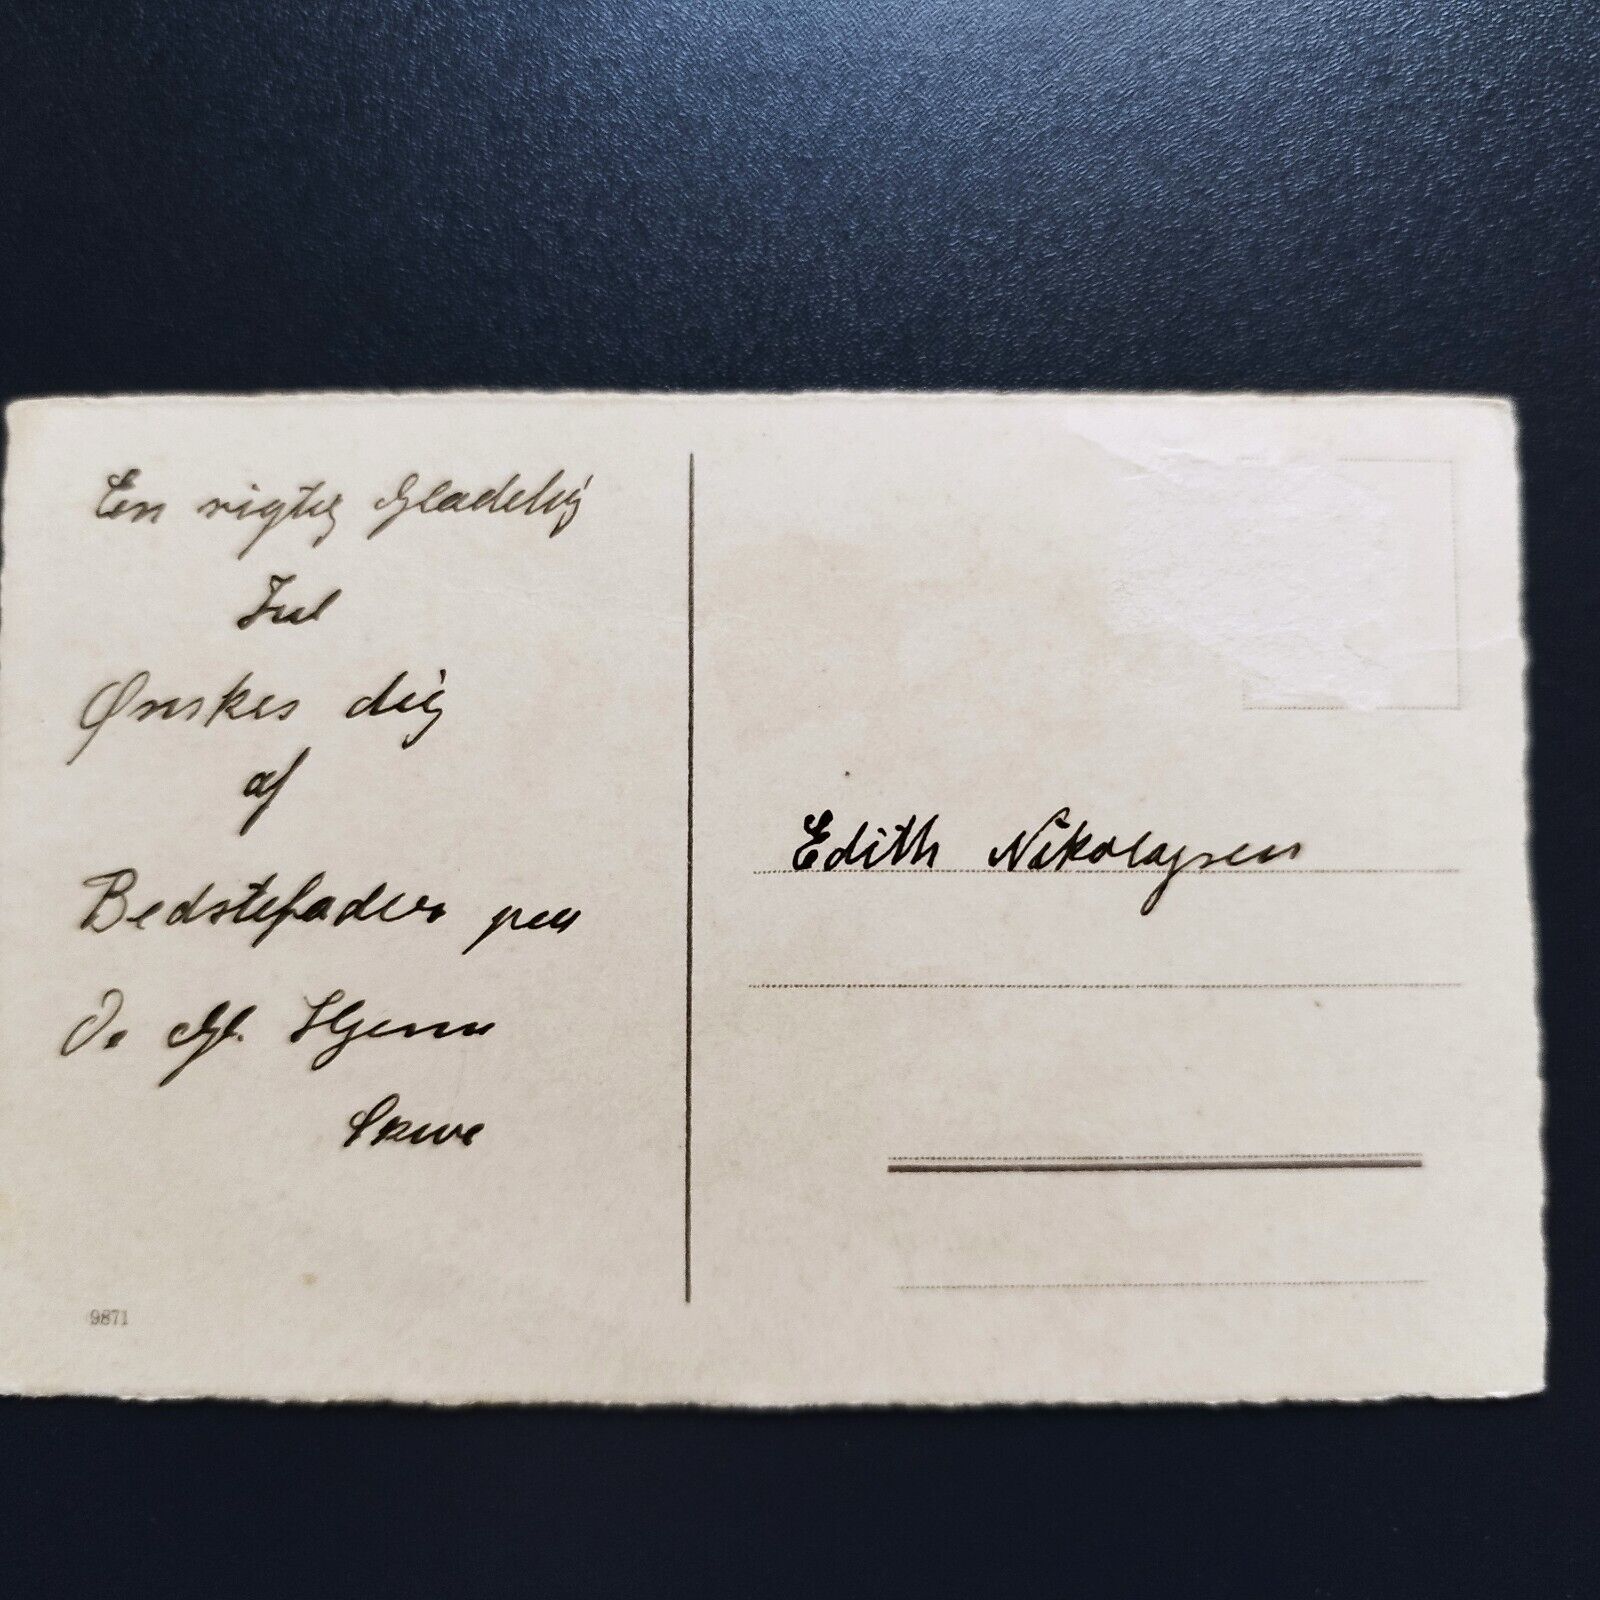 En rigtig Gladelig
Jul
Ønskes dig
af
Bedstefader paa
D. Gl. Hjem
Skive
9871
Edith Nikolajsen